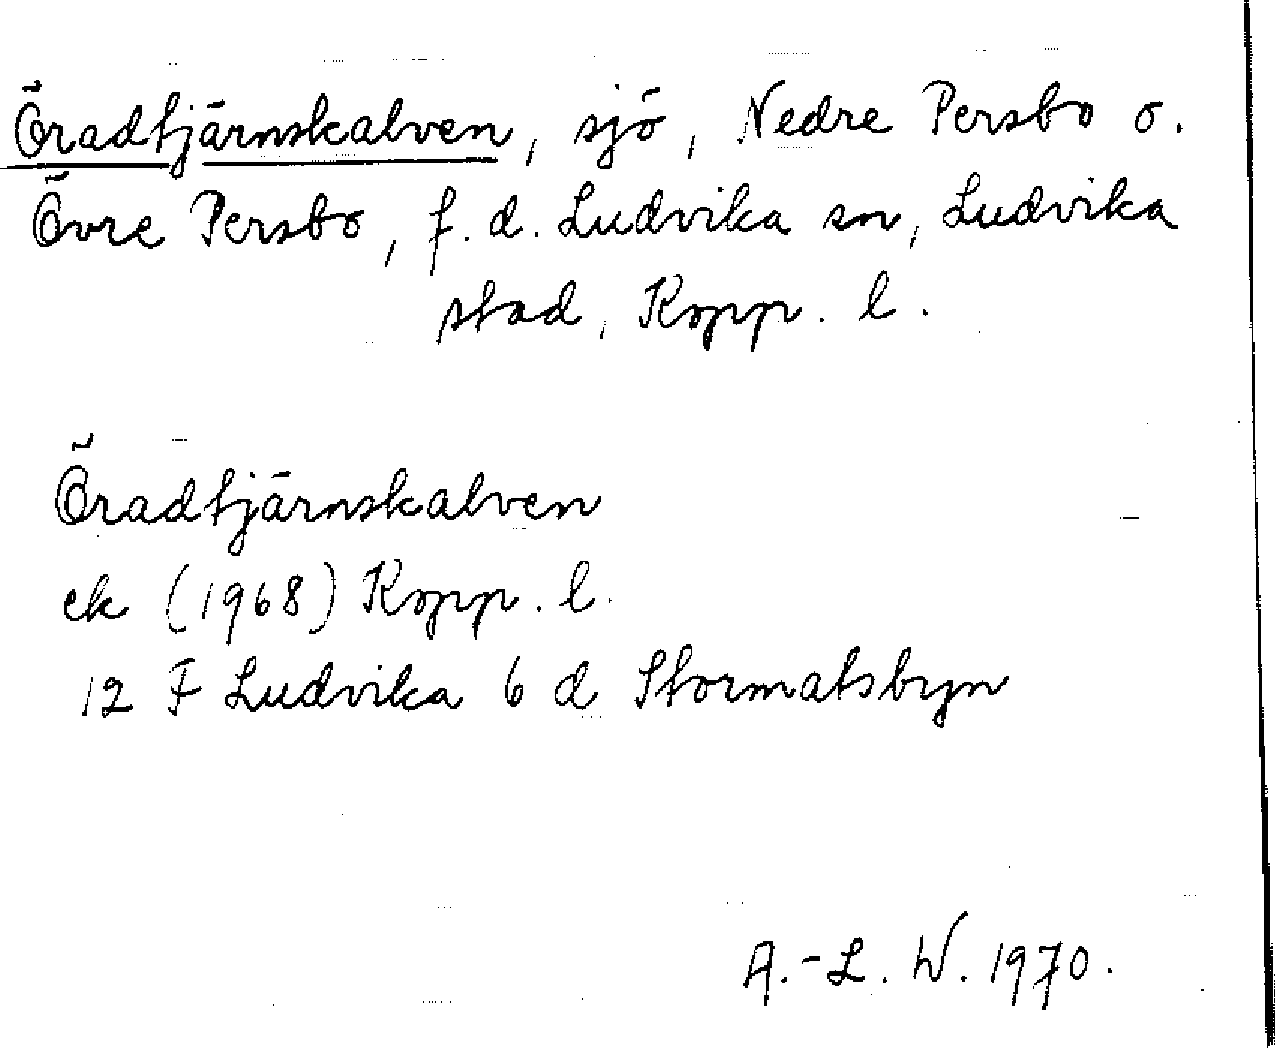 Öradtjärnskalven, sjö, Nedre Persbo o.
Övre Persbo, f.d. Ludvika sn, Ludvika
stad, Kopp. l.
Öradtjärnskalven
ek (1968) Kopp. l.
12 F Ludvika 6 d Stormatsbyn
A.-L. W. 1970.